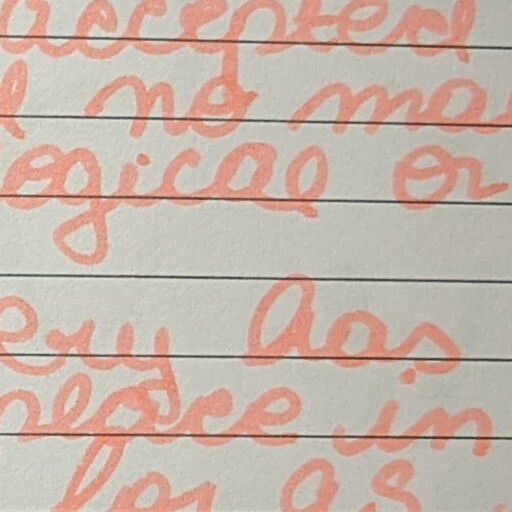 accepted
no ma
ogical or
ery has
place in